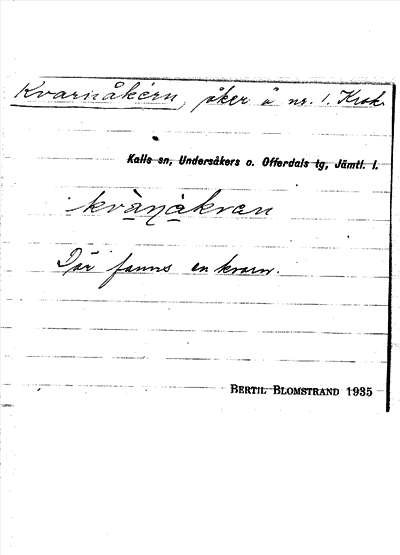 Kvarnåkern, åker å nr. 1. Krok.
Kalls sn, Undersåkers o. Offerdals tg, Jämtl. l.
kvàṇåkran
Där fanns en kvarn.
BERTIL BLOMSTRAND 1935